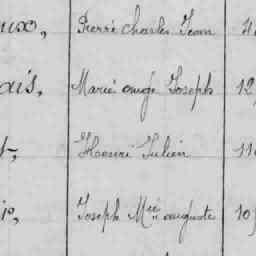 aux, Pierre Charles Jean 4
ais, Marie ange Joseph 12
t, Henri Julien 11
Joseph Mie auguste 10